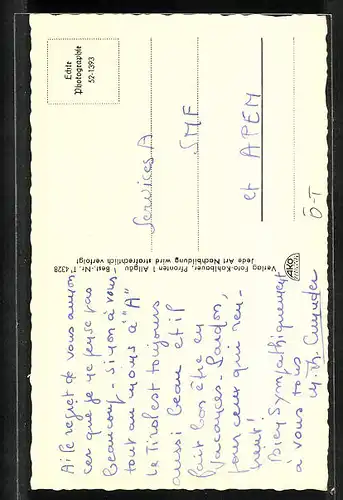 Ai le regret de vous annon
cer que je ne pense pas
beaucoup - sinon à vous
tout au moins à "A"
Le Tirol est toujours
aussi beau et il
fait bon être en
vacances - Pardon,
pour ceux qui
Bien Sympathiquement
à vous tous
Verlag Foto-Kohlbauer, Pfronten / Allgäu Best.-Nr. T 4328
Jede Art Nachbildung wird strafrechtlich verfolgt
AKO
Echte
Photographie
52-1393
Services A
SMF
et APEM
Ö-T